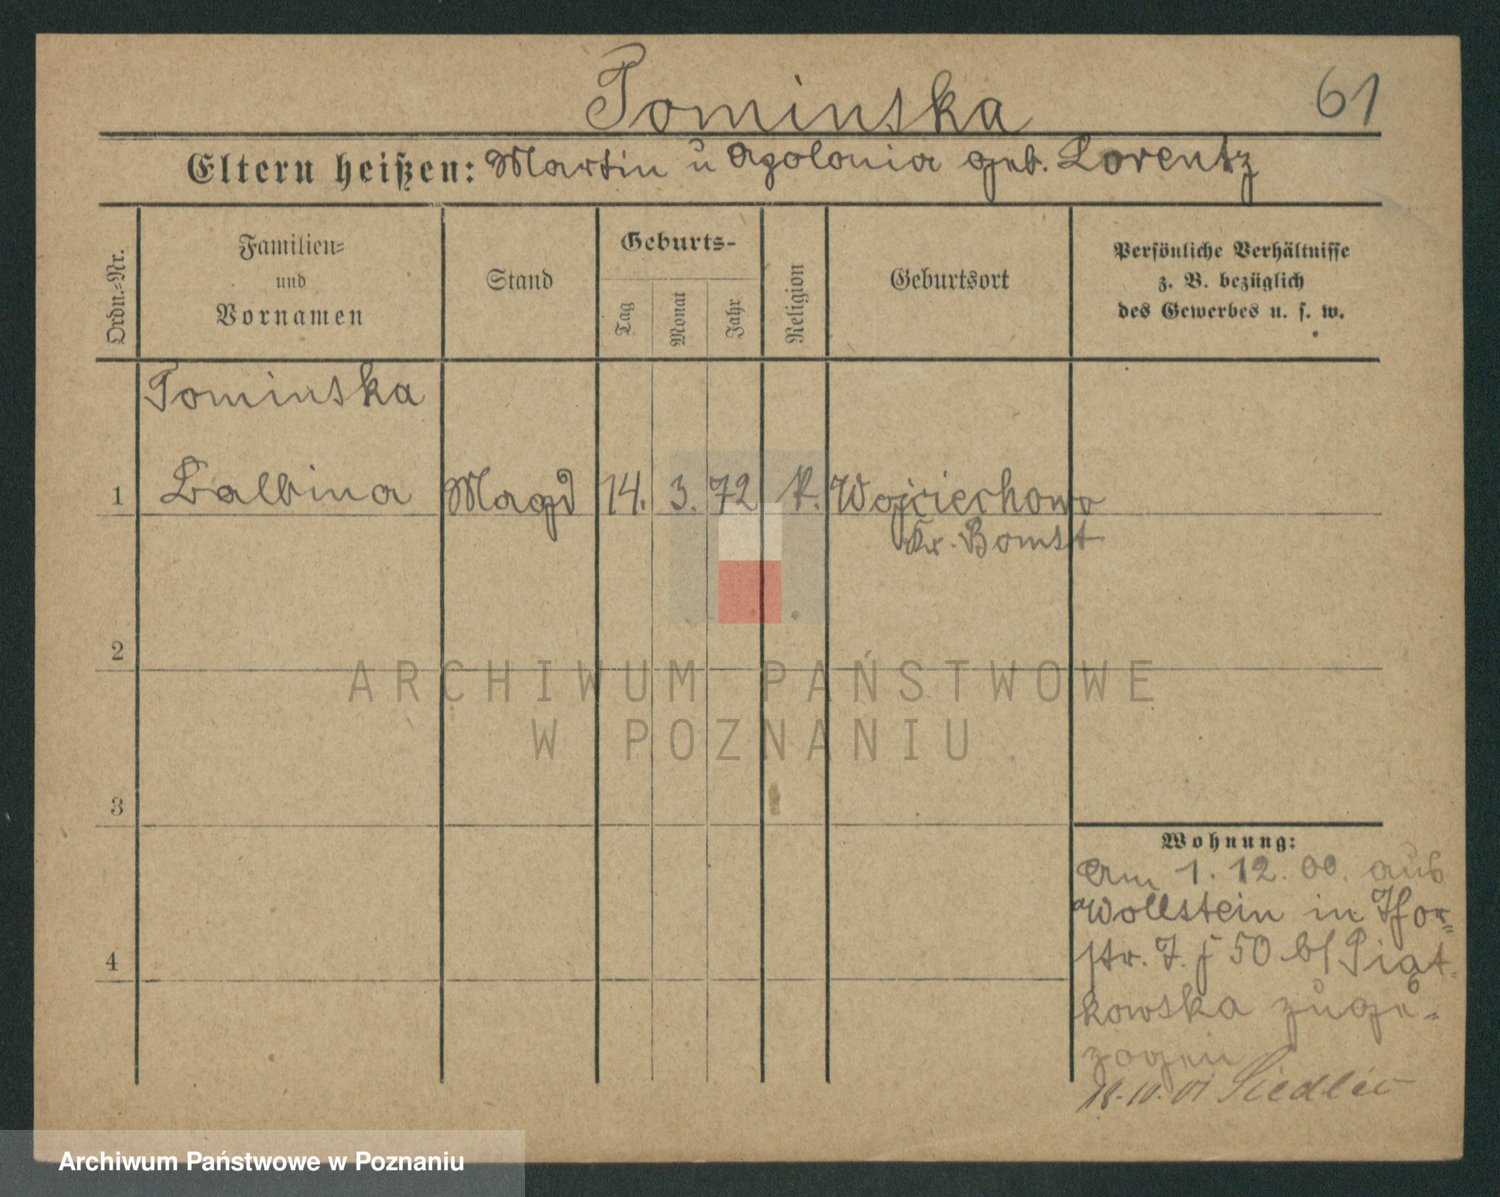 Tominska
61
Eltern heißen: Martin u Apolonia geb. Lorentz
Ordn.-Nr.
Familien-
und
Vornamen
Stand
Geburts-
Tag
Monat
Jahr
Religion
Geburtsort
Persönliche Verhältnisse
z. B. bezüglich
des Gewerbes u. s. w.
Tominska
1 Balbina Magd 14. 3. 72 K. Wojciechowo
Kr. Bomst
2
ARCHIWUM PAŃSTWOWE
W POZNANIU
3
Wohnung:
Am 1. 12. 00. aus
Wollstein in
str. 50 b/ Piąt-
4
kowska zuge-
zogen
01
Archiwum Państwowe w Poznaniu